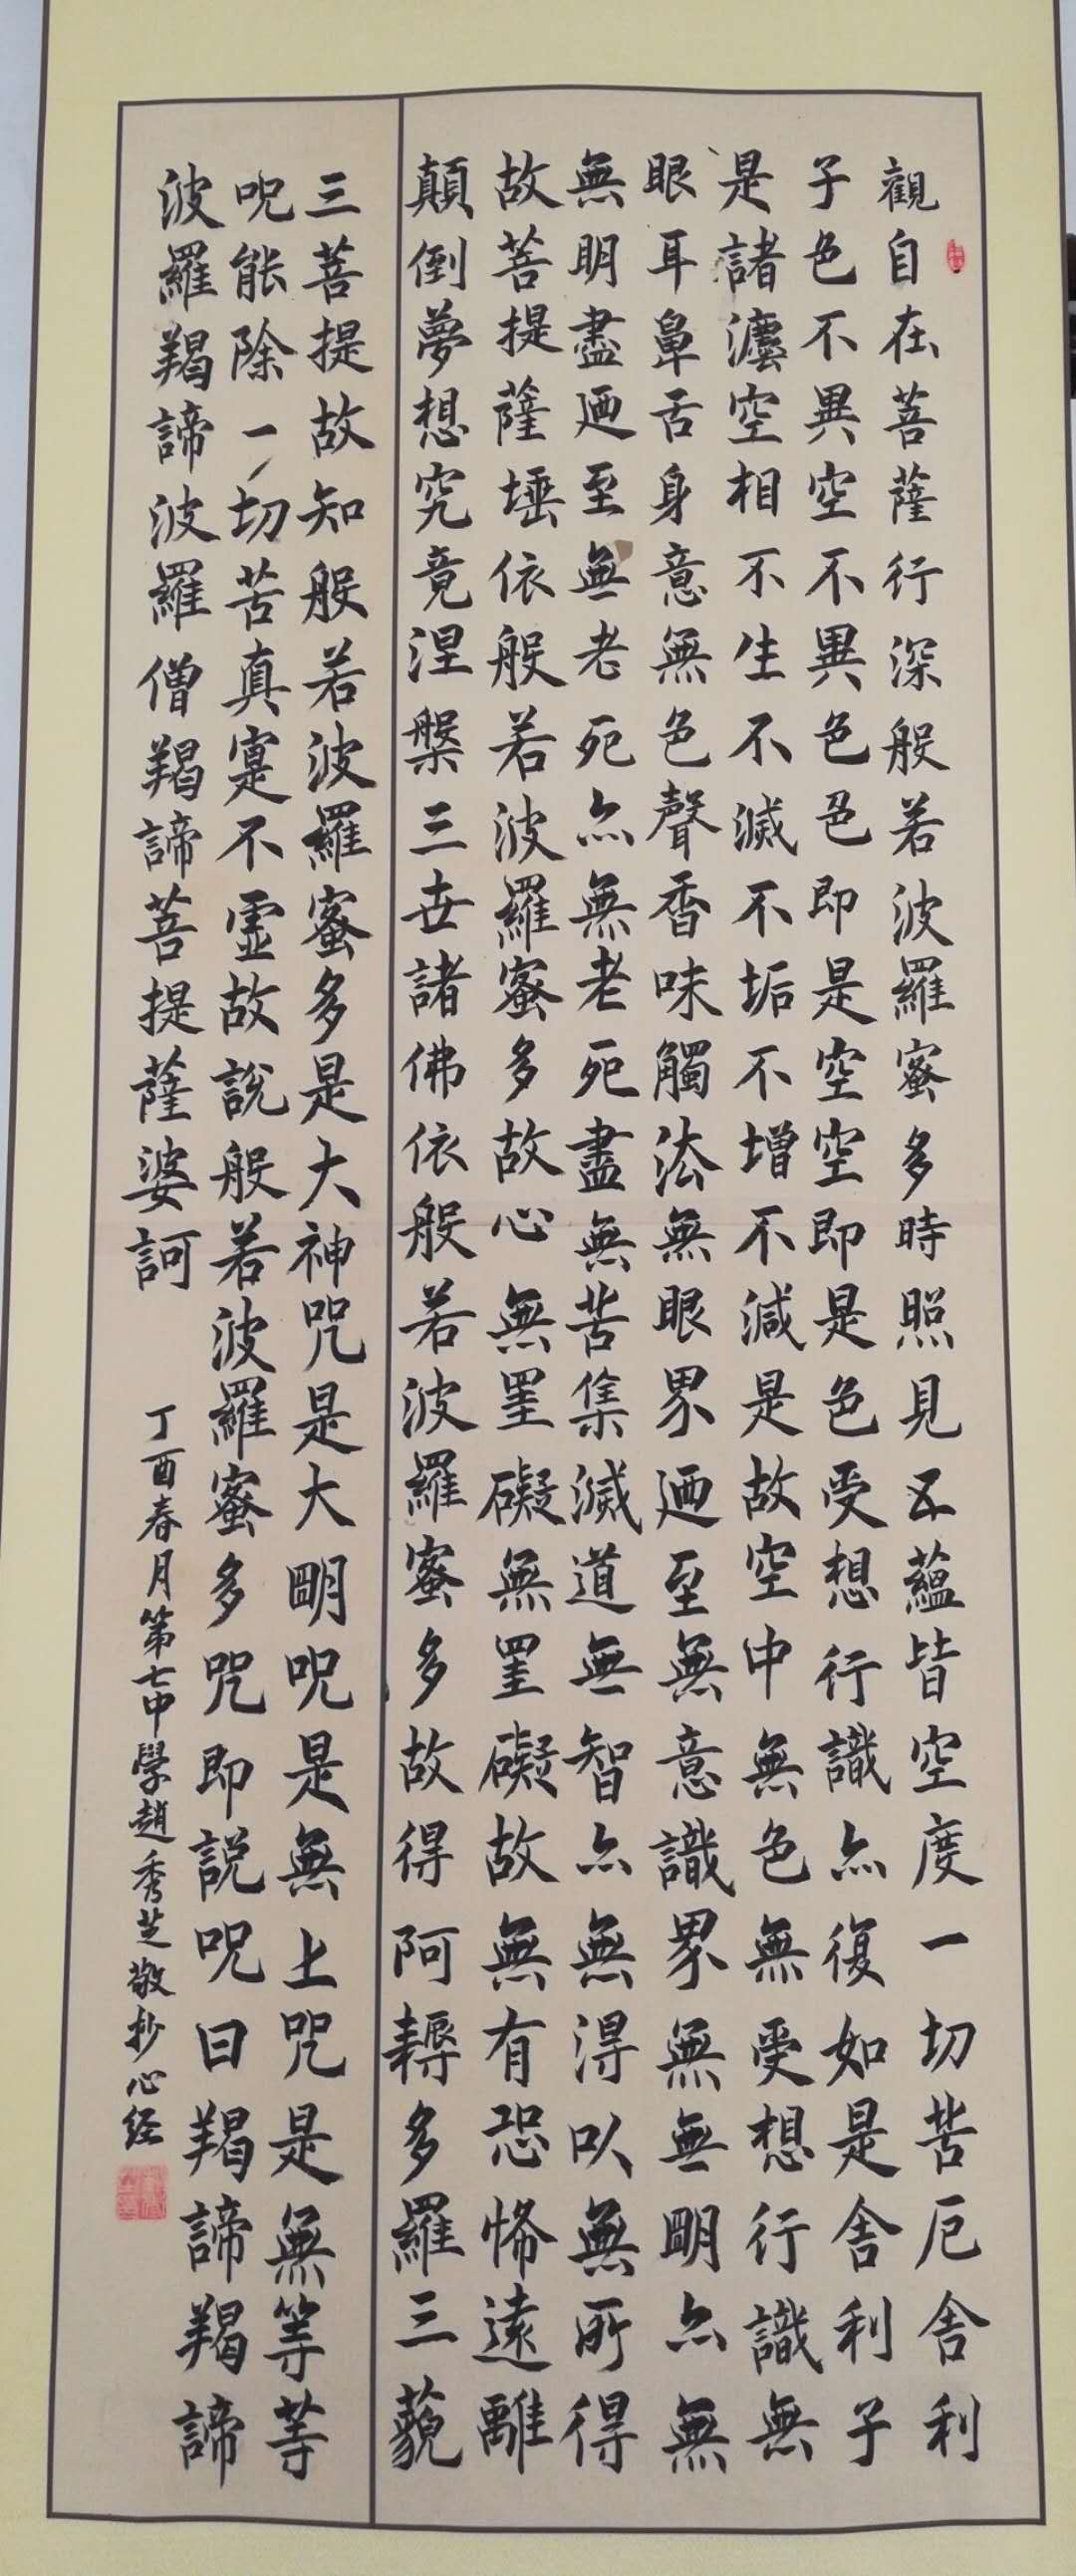 觀自在菩薩行深般若波羅蜜多時照見五蘊皆空度一切苦厄舍利
子色不異空不異色色即是空空即是色受想行識亦復如是舍利子
是諸灋空相不生不滅不垢不增不減是故空中無色無受想行識無
眼耳鼻舌身意無色聲香味觸法無眼界迺至無意識界無無明亦無
無明盡迺至無老死亦無老死盡無苦集滅道無智亦無得以無所得
故菩提薩埵依般若波羅蜜多故心無罣礙無罣礙故無有恐怖遠離
顛倒夢想究竟涅槃三世諸佛依般若波羅蜜多故得阿耨多羅三藐
三菩提故知般若波羅蜜多是大神咒是大明呪是無上咒是無等等
呪能除一切苦真實不虛故說般若波羅蜜多咒即説呪曰羯諦羯諦
波羅羯諦波羅僧羯諦菩提薩婆訶
丁酉春月第七中學趙秀芝敬抄心经